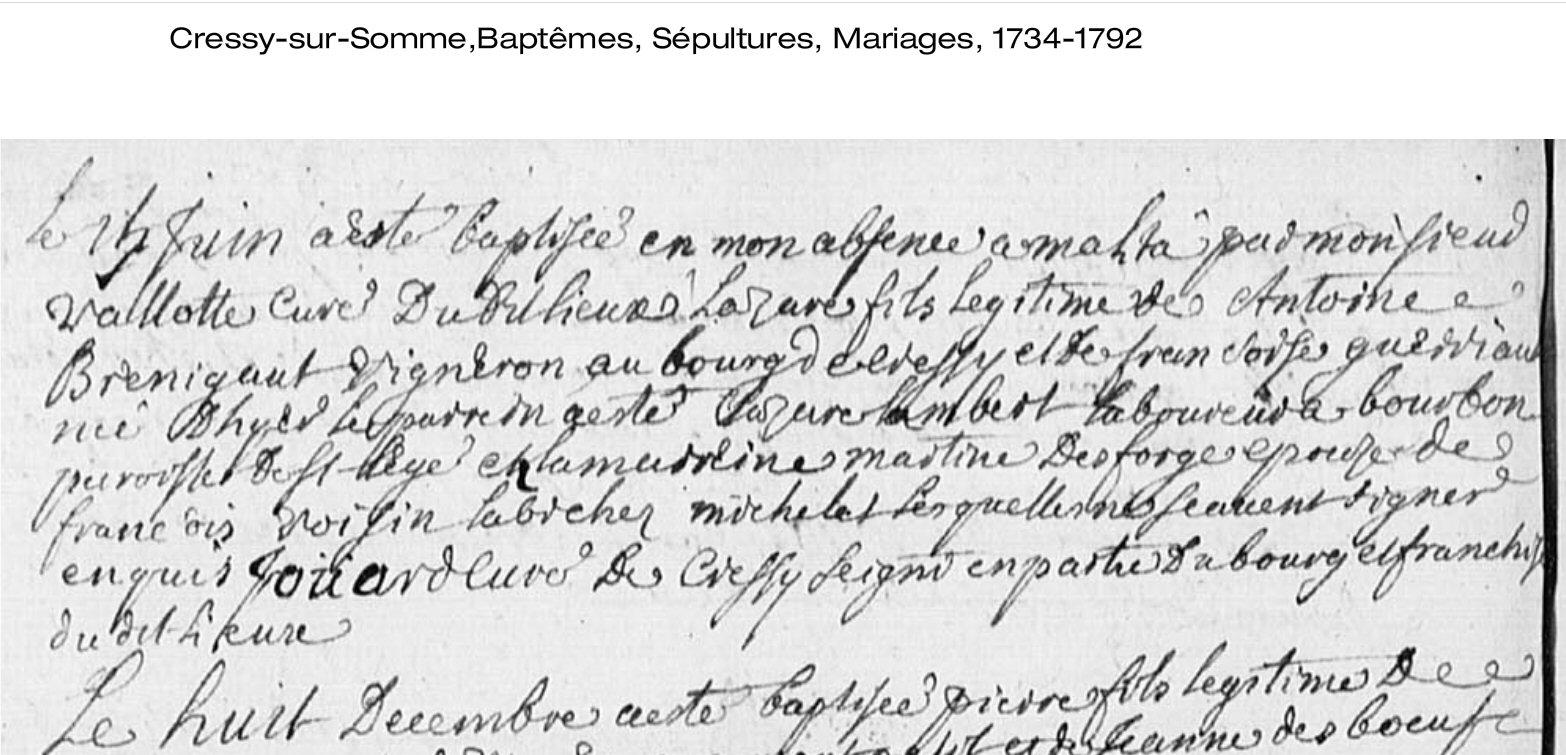 Cressy-sur-Somme,Baptêmes, Sépultures, Mariages, 1734-1792
Le Juin aesté baptisee en mon absence a malta par monsieur
vallotte Curé Du dit lieux Lazare fils legitime de Antoine
Brenigaut vigneron au bourg de Cressy et De francoise
né Dhyer le parrein aesté Lazare lambert laboureur a bourbon
paroisse De St lége et la marreine martine Desforge epouze de
francois voisin michelet lesquelles ne scauent signer
enquis Joüard curé De Cressy seignr en partie Du bourg et franchise
du dit lieure
Le huit Decembre aesté baptisee pierre fils legitime De
et de Jeanne des boeufs